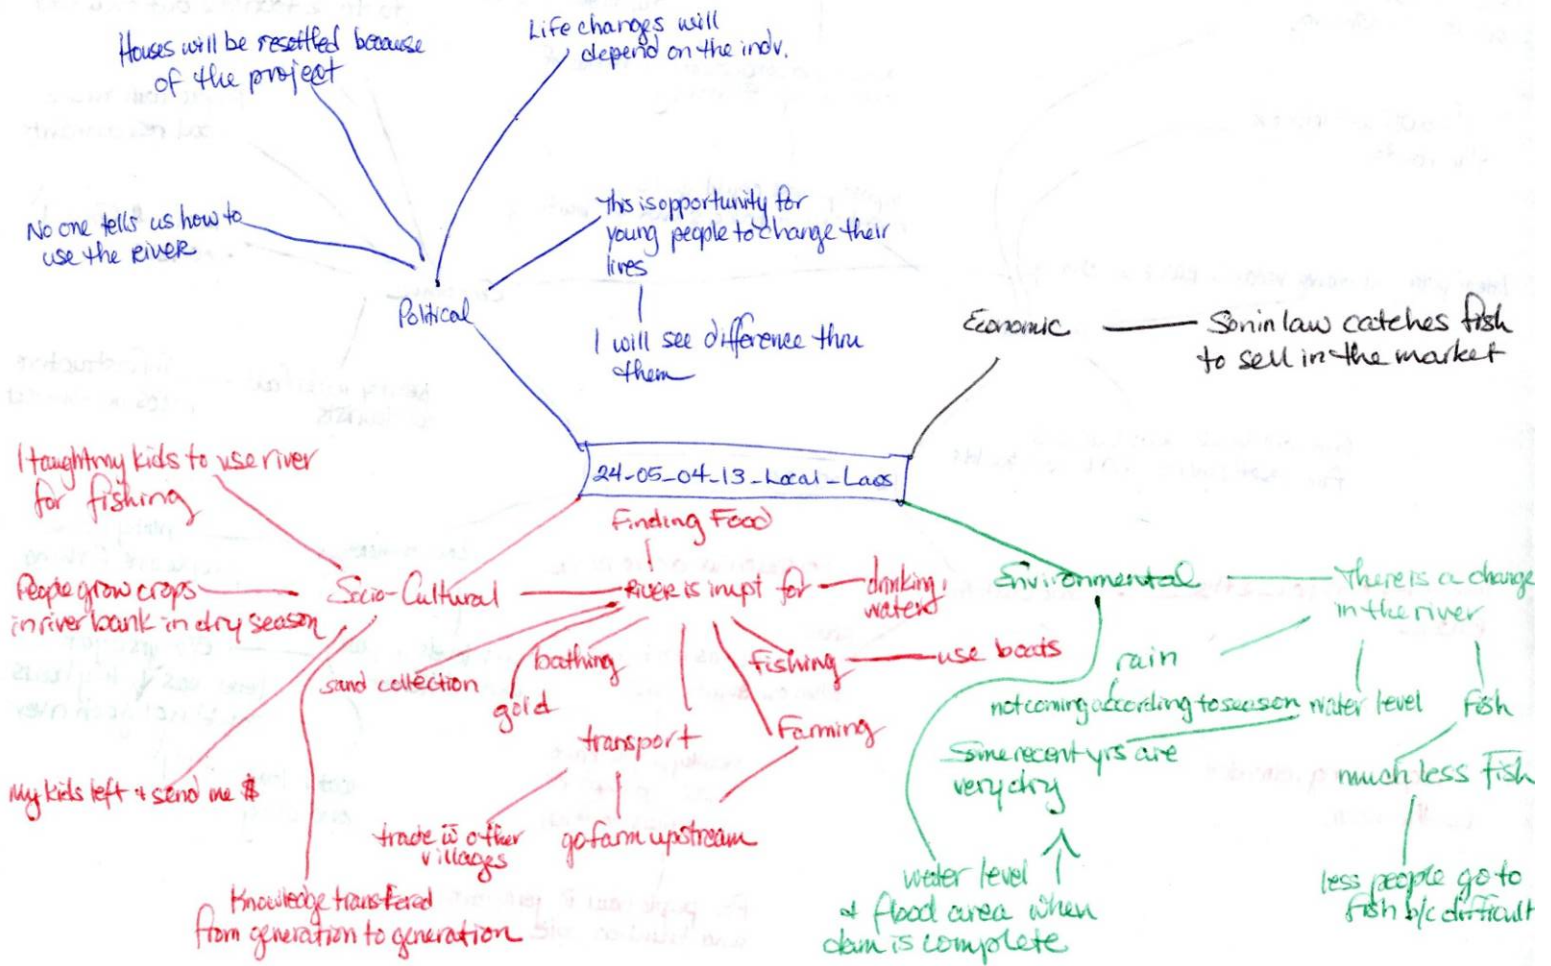 Houses will be resettled because
of the project
Life changes will
depend on the indv.
No one tells us how to
use the river
This is opportunity for
young people to change their
lives
I will see difference thru
them
Political
Economic
Son in law catches fish
to sell in the market
24-05-04-13_Local_Laos
I taught my kids to use river
for fishing
People grow crops
in river bank in dry season
Socio-Cultural
Finding Food
River is impt for
drinking
water
sand collection
gold
bathing
transport
fishing
use boats
Farming
trade w̄ other
villages
go farm upstream
My kids left & send me $
Knowledge transfered
from generation to generation
Environmental
There is a change
in the river
rain
not coming according to season
water level
fish
Some recent yrs are
very dry
much less fish
less people go to
fish b/c difficult
water level ↑
& flood area when
dam is complete